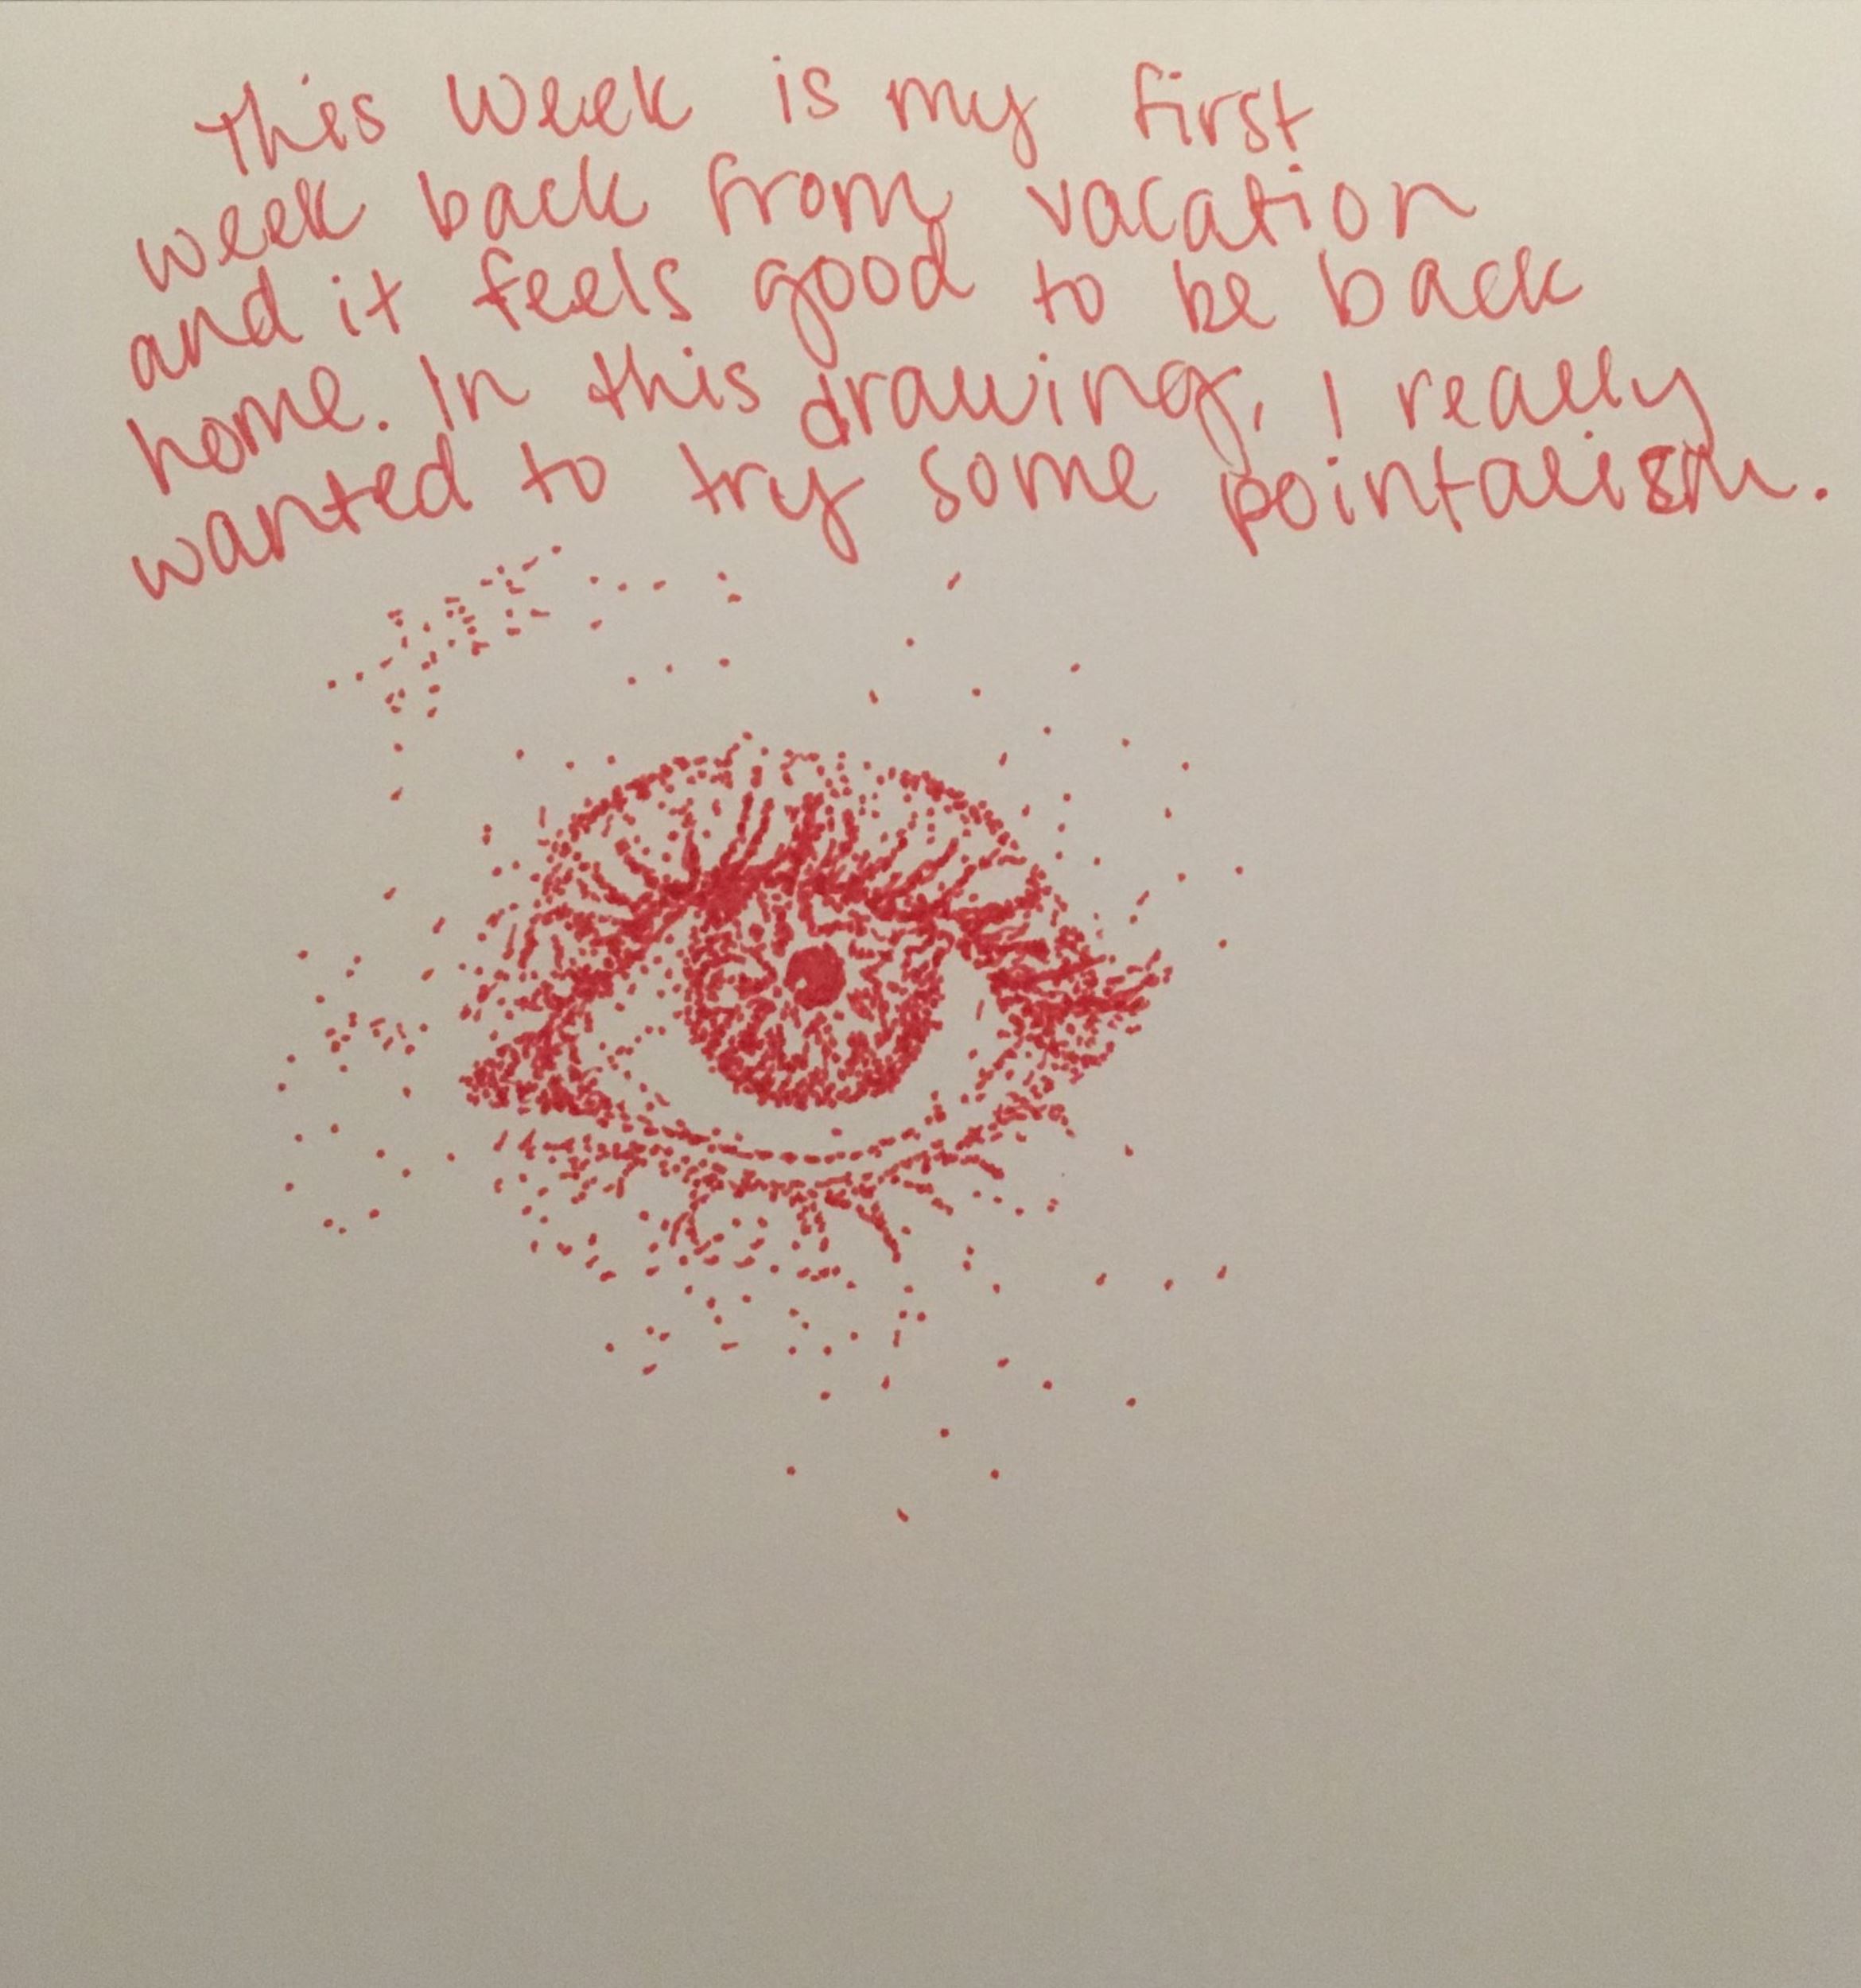 This week is my first
week back from vacation
and it feels good to be back
home. In this drawing, I really
wanted to try some pointalism.